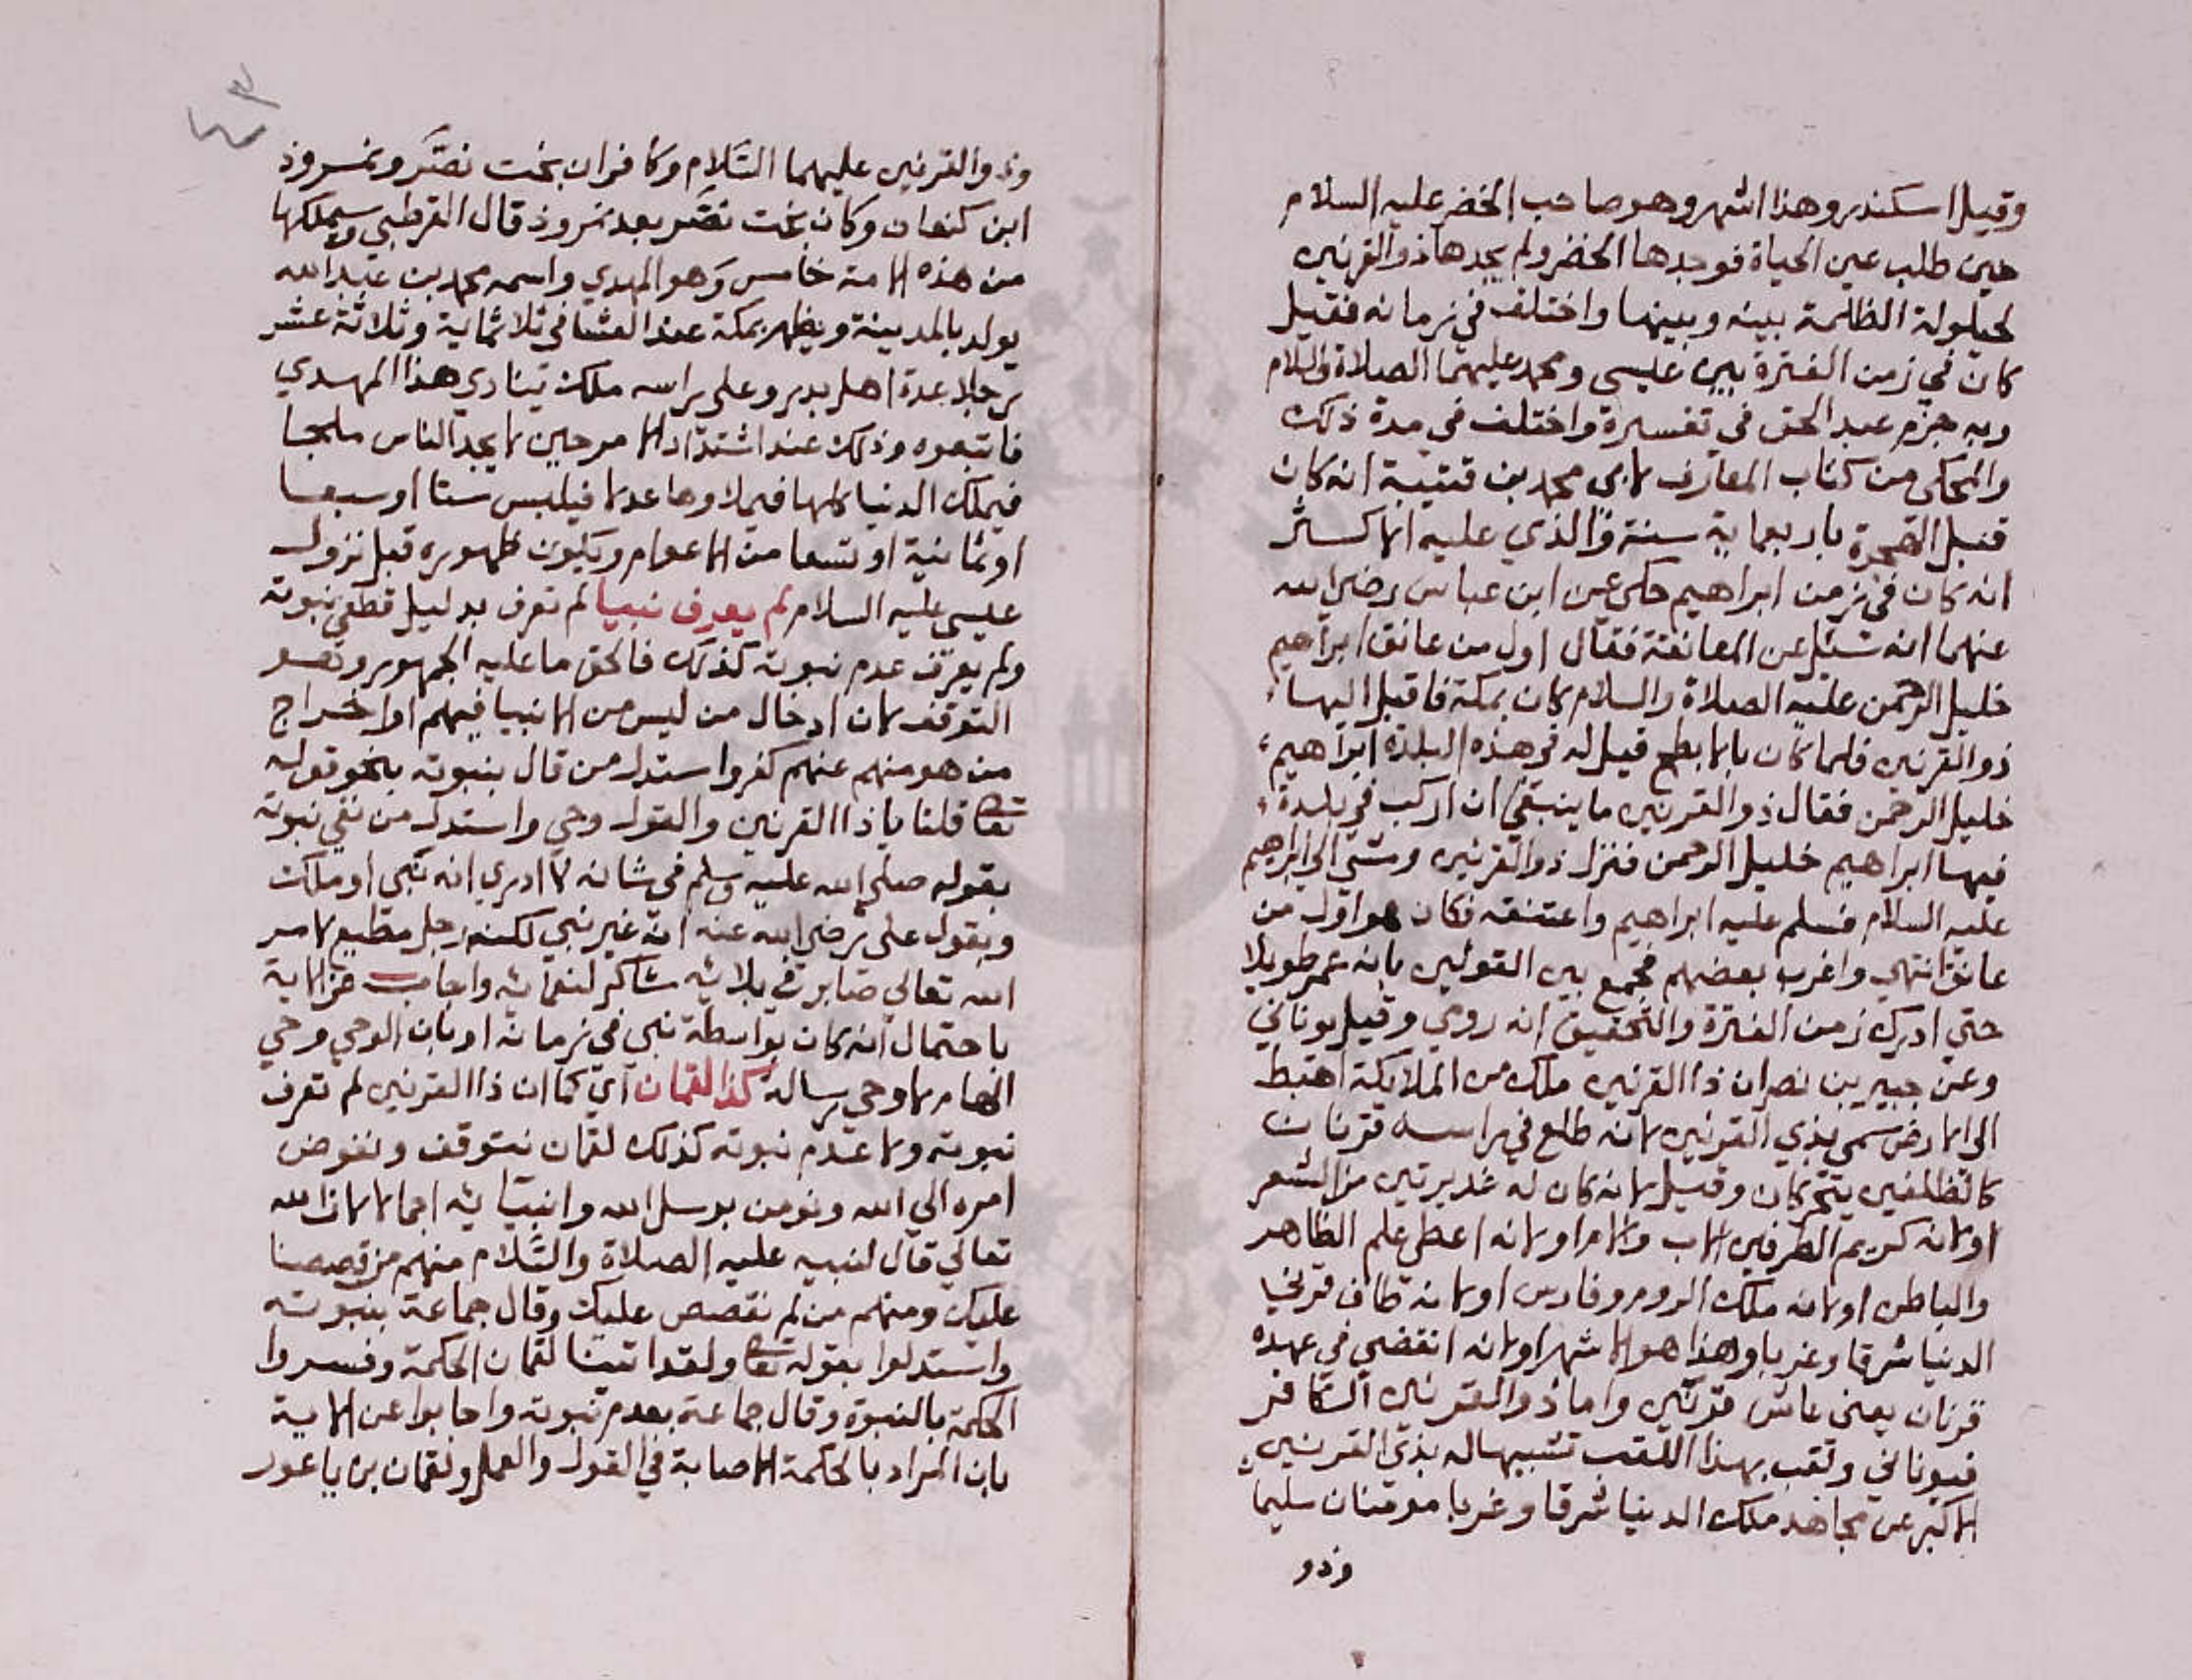 وقيل اسكندر وهذا اشهر وهو صاحب الخضر عليه السلام
حين طلب عين الحياة فوجدها الخضر ولم يجدها ذو القرنين
لحيلولة الظلمة بينه وبينها واختلف في زمانه فقيل
كان في زمن الفترة بين عيسى ومحمد عليهما الصلاة والسلام
وبه جزم عبد الحق في تفسيره واختلف في مدة ذلك
والمحكي من كتاب المعارف لابي محمد بن قتيبة انه كان
قبل الهجرة باربعماية سنة والذي عليه الاكثر
انه كان في زمن ابراهيم حكي عن ابن عباس رضي الله
عنهما انه سئل عن المعانقة فقال اول من عانق ابراهيم
خليل الرحمن عليه الصلاة والسلام كان بمكة فاقبل اليها
ذو القرنين فلما كان بالابطح قيل له في هذه البلدة ابراهيم
خليل الرحمن فقال ذو القرنين ما ينبغي ان اركب في بلدة
فيها ابراهيم خليل الرحمن فنزل ذو القرنين ومشى الي ابراهيم
عليه السلام فسلم عليه ابراهيم واعتنقه فكان هو اول من
عانق انتهى واغرب بعضهم فجمع بين القولين بانه عمر طويلا
حتي ادرك زمن الفترة والتحقيق انه رومي وقيل يوناني
وعن جبير بن نصر ان ذا القرنين ملك من الملايكة اهبط
الى الارض سمي بذي القرنين لانه طلع في راسه قرنان
كالظلفين يتحركان وقيل لانه كان له غديرتين من الشعر
او لانه كريم الطرفين الاب والام او لانه اعطى علم الظاهر
والباطن او لانه ملك الروم وفارس او لانه طاف قرني
الدنيا شرقا وغربا وهذا هو الاشهر او لانه انقضى في عهده
قرنان يعني عاش قرنين واما ذو القرنين الكافر
فيوناني ولقب بهذا اللقب تشبيها له بذي القرنين
الاكبر عن مجاهد ملك الدنيا شرقا وغربا مومنان سليمان
وذو
وذو القرنين عليهما السلام وكافران بخت نصر ونمروذ
ابن كنعان وكان بخت نصر بعد نمروذ قال القرطبي وسيملكها
من هذه الامة خامس وهو المهدي واسمه محمد بن عبد الله
يولد بالمدينة ويظهر بمكة عند العشا في ثلاثماية وثلاثة عشر
رجلا عدة اهل بدر وعلى راسه ملك ينادي هذا المهدي
فاتبعوه وذلك عند اشتداد الامر حين لا يجد الناس ملجا
فيملك الدنيا كلها فيملاوها عدلا فيلبس ستا او سبعا
او ثمانية او تسعا من الاعوام ويكون ظهوره قبل نزول
عيسى عليه السلام لم يعرف نبيا لم تعرف بدليل قطعي نبوته
ولم يعرف عدم نبوته كذلك فالحق ما عليه الجمهور وهو
التوقف لان ادخال من ليس من الانبيا فيهم او اخراج
من هو منهم عنهم كفر واستدل من قال بنبوته بنحو قوله
تعالى قلنا يا ذا القرنين والقول وحي واستدل من نفي نبوته
بقوله صلى الله عليه وسلم في شانه لا ادري انه نبي او ملك
وبقول علي رضي الله عنه انه غير نبي لكنه رجل مطيع لامر
الله تعالي صابر في بلائه شاكر لنعمائه واجاب عن الاية
باحتمال انه كان بواسطة نبي في زمانه او بان الوحي وحي
الهام لا وحي رسالة كذا لقمان اي كما ان ذا القرنين لم تعرف
نبوته ولا عدم نبوته كذلك لقمان نتوقف ونفوض
امره الي الله ونومن برسل الله وانبيائه اجمالا لان الله
تعالي قال لنبيه عليه الصلاة والسلام منهم من قصصنا
عليك ومنهم من لم نقصص عليك وقال جماعة بنبوته
واستدلوا بقوله تعالى ولقد اتينا لقمان الحكمة وفسروا
الحكمة بالنبوة وقال جماعة بعدم نبوته واجابوا عن الاية
بان المراد بالحكمة الاصابة في القول والعمل ولقمان بن ياعور